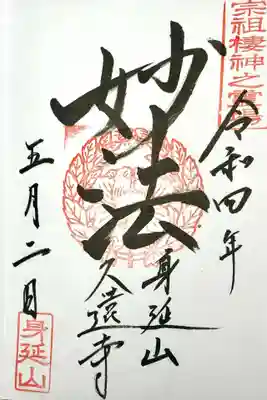 宗祖棲神之霊
令和四年
妙法
身延山
久遠寺
五月二日
身延山